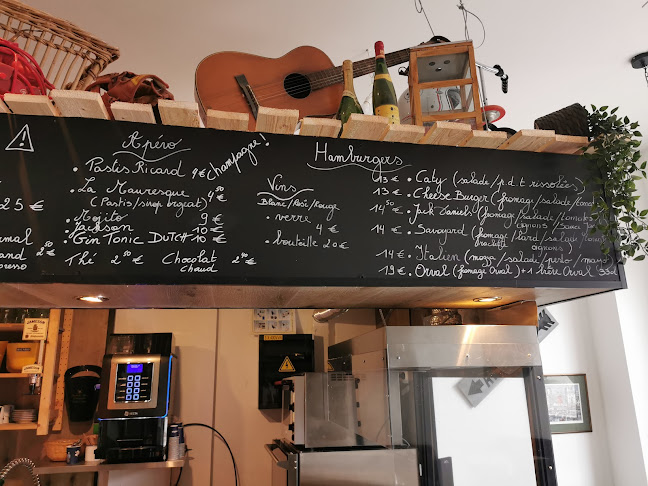 25 €
Apéro
Champagne!
• Pastis Ricard 4 €
• La Mauresque 4 50 €
(Pastis/sirop orgeat)
• Mojito 9 €
• Jackson 10 €
• Gin Tonic DUTCH 10 €
Thé 2 50 € Chocolat chaud 2 90 €
Vins
Blanc/Rosé/Rouge
• verre 4 €
• bouteille 20 €
Hamburgers
13 € • Caty (salade/p.d.t rissolées)
13 € • Cheese Burger (fromage/salade/tomate
14 50 € • Jack Daniel's (fromage/salade/tomates
oignons
14 € • Savoyard (fromage/lard/salade
oignons
14 € • Italien (mozza/salade/pesto/
19 € • Orval (fromage Orval) + 1 bière Orval 33cl